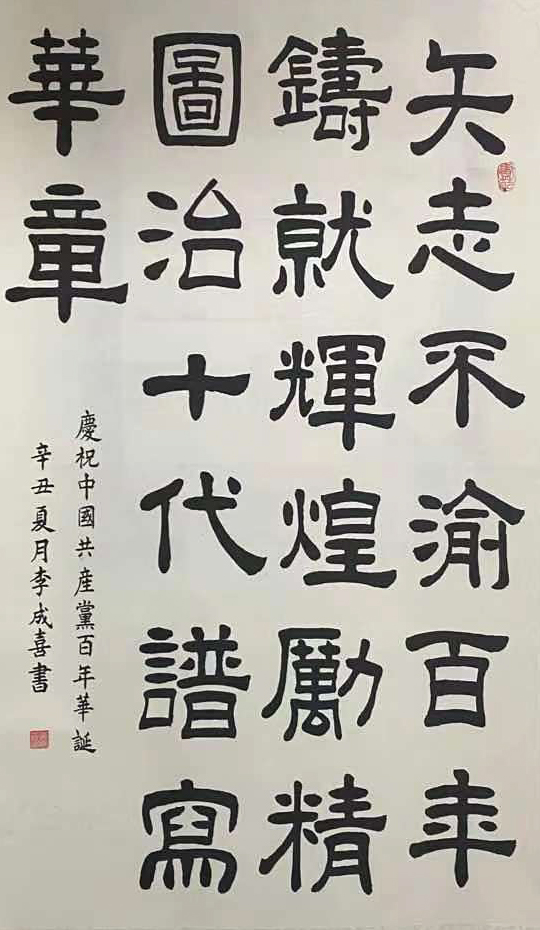 矢志不渝百年
鑄就輝煌勵精
圖治十代譜寫
華章
慶祝中國共產黨百年華誕
辛丑夏月李成喜書